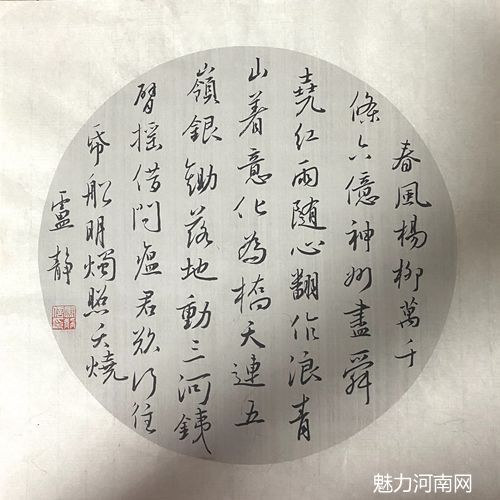 春風楊柳萬千
條六億神州盡舜
堯紅雨随心翻作浪青
山着意化為橋天連五
嶺銀鋤落地動三河銕
臂摇借問瘟君欲何往
帋船明燭照天燒
盧静
魅力河南网